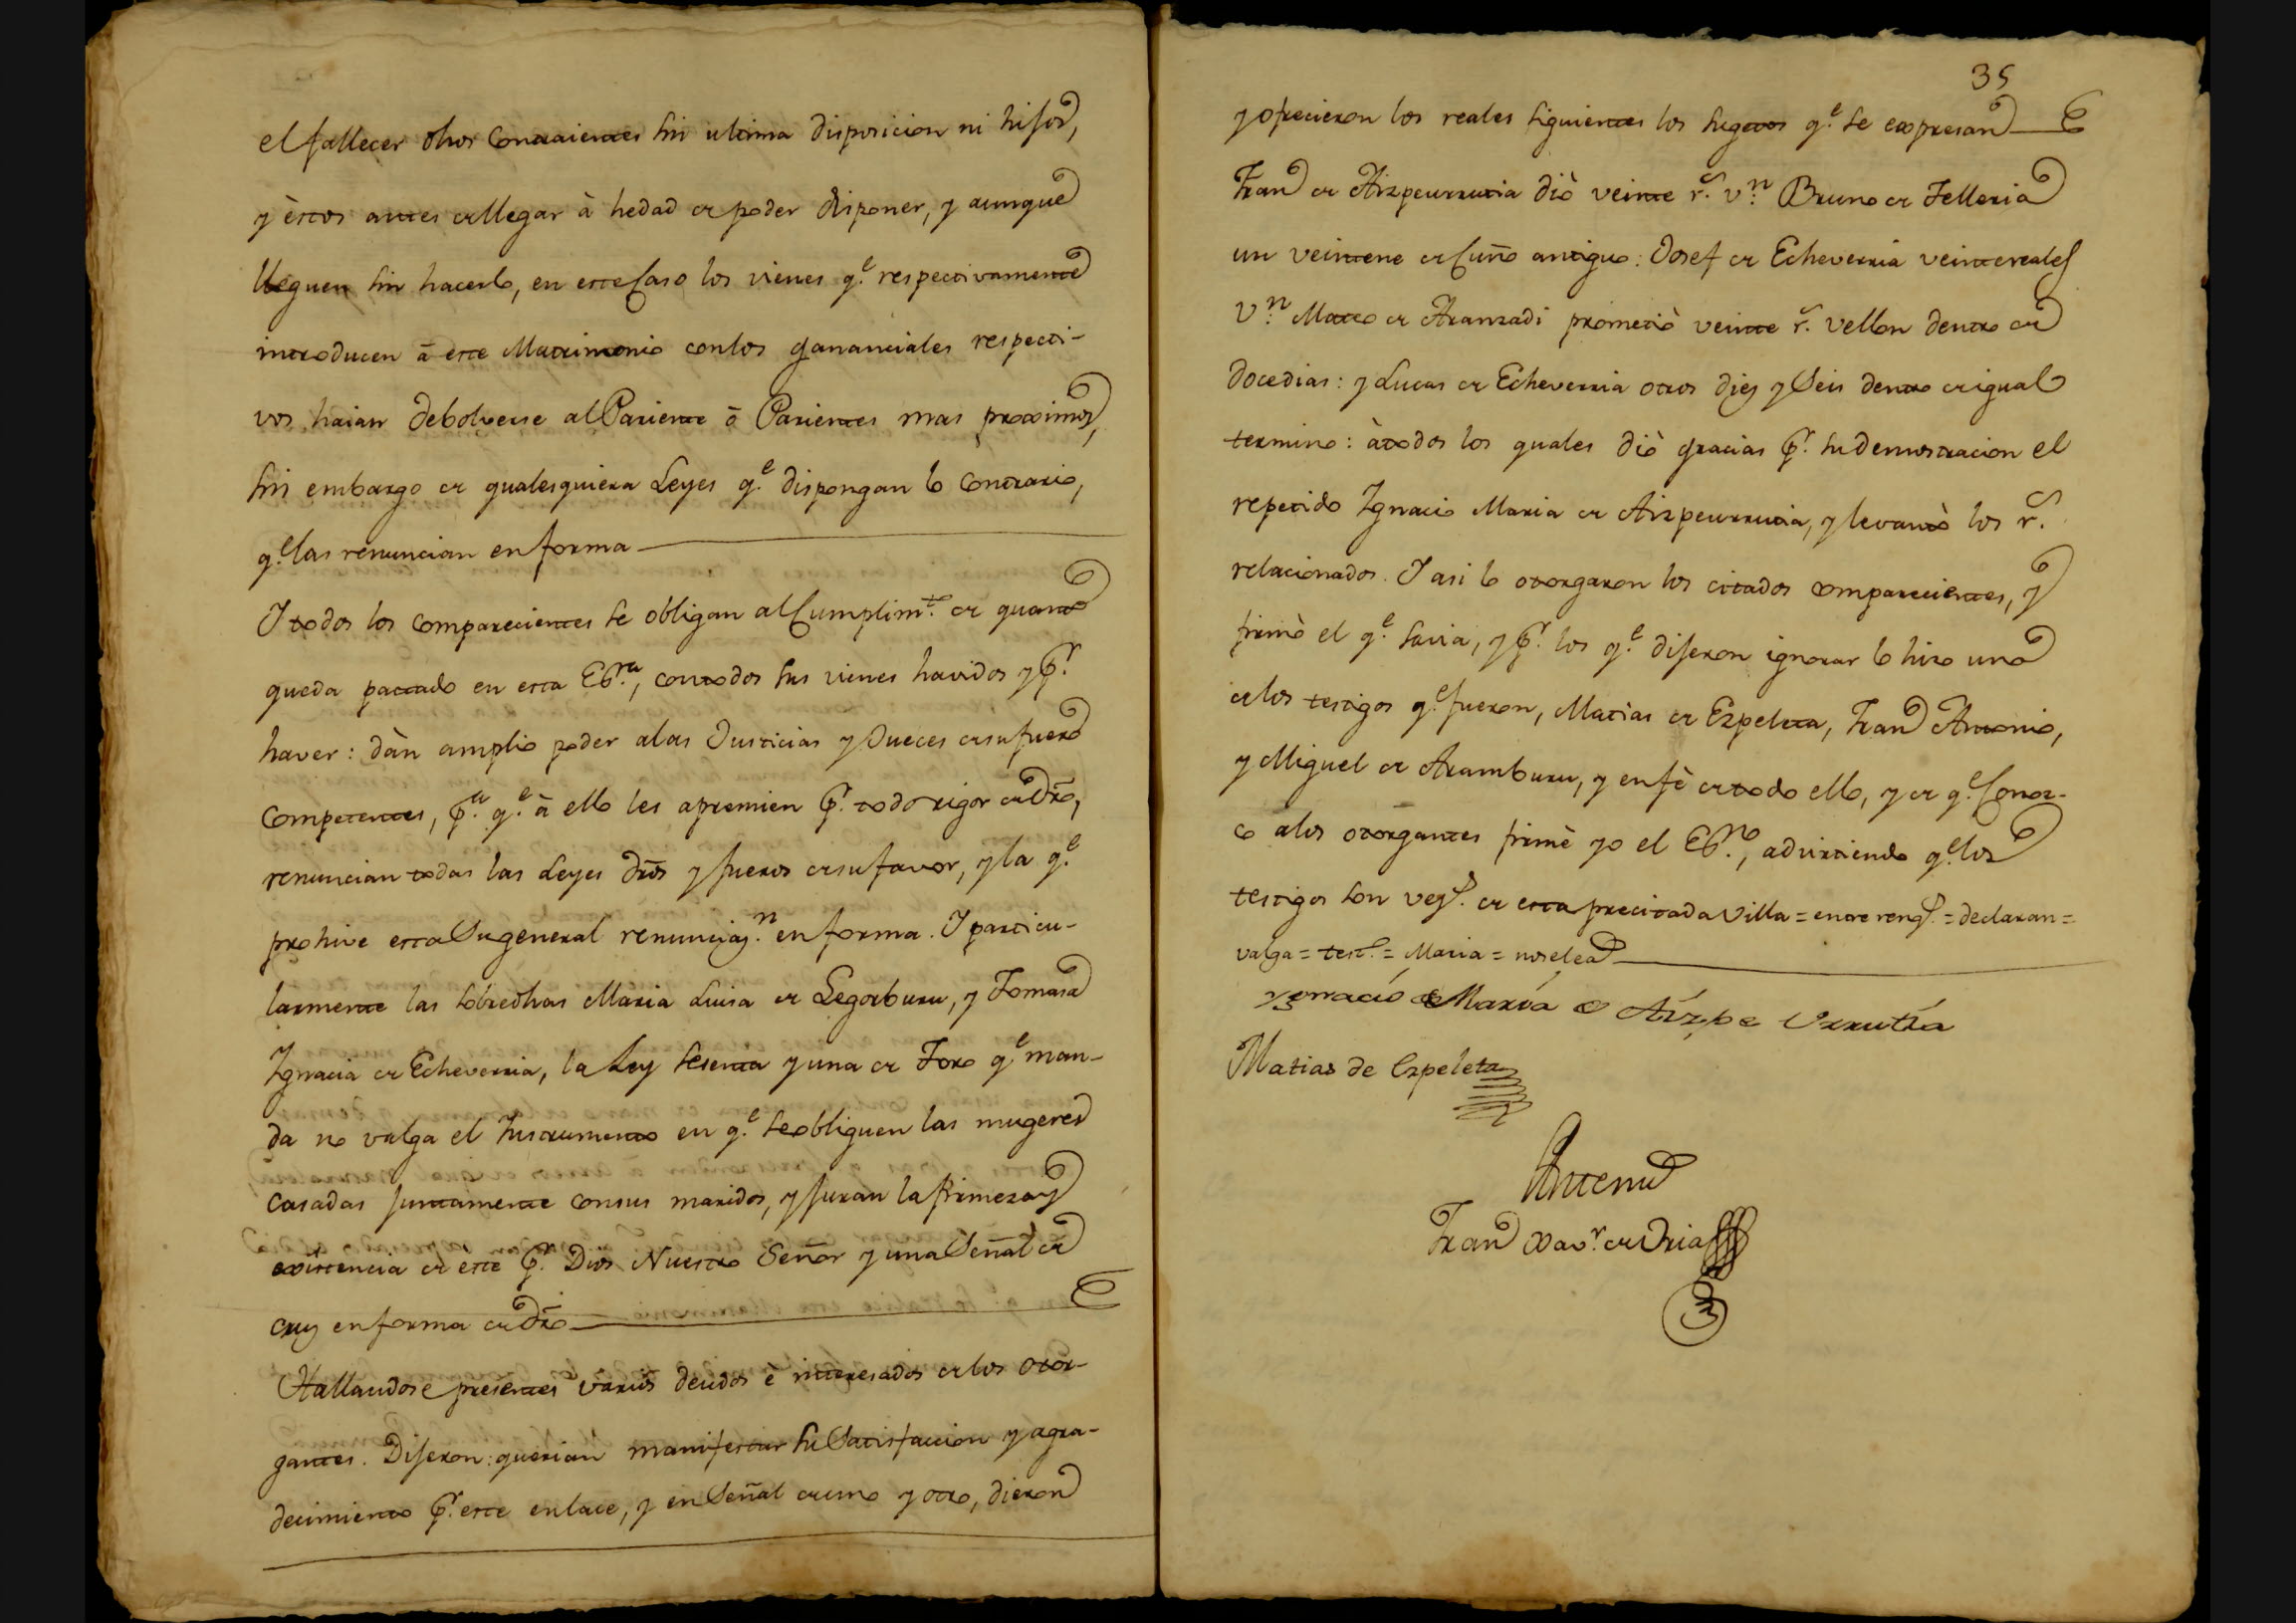 el fallecer dhos Contraientes sin ultima disposicion ni hijos,
y èstos antes de llegar à hedad de poder disponer, y aunque
lleguen sin hacerlo, en este Caso los vienes q.e respectivamente
introducen ā este Matrimonio con los gananciales respecti-
vos haian debolverse al Pariente ō Parientes mas proximos,
sin embargo de qualesquiera Leyes q.e dispongan lo Contrario,
q.e las renuncian en forma
I todos los comparecientes se obligan al Cumplim.to de quanto
queda pactado en esta Es.ra, con todos sus vienes havidos y p.r
haver: dàn amplio poder a las Justicias y Jueces de su fuero
Competentes, p.a q.e à ello les apremien p.r todo rigor de Dro,
renuncian todas las Leyes dros y fueros de su favor, y la q.e
prohive esta Su general renunciaz.n en forma. I particu-
larmente las sobredhas Maria Luisa de Legorburu, y Tomasa
Ignacia de Echeverria, la Ley sesenta y una de Toro q.e man-
da no valga el Instrumento en q.e se obliguen las mugeres
casadas juntamente con sus maridos, y juran la firmeza y
existencia de este p.r Dios Nuestro Señor y una Señal de
cruz en forma de Dro
Hallandose presentes varios deudos è interesados de los otor-
gantes. Dijeron: querian manifestar su Satisfaccion y agra-
decimiento p.r este enlace, y en Señal de uno y otro, dieron
35
y ofrecieron los reales siguientes los sugetos q.e se expresan
Fran.co de Aizpeurrutia diò veinte r.s v.n Bruno de Telleria
un veinteno de Cuño antiguo: Josef de Echeverria veinte reales
V.n Mateo de Aranzadi prometiò veinte r.s vellon dentro de
doce dias: y Lucas de Echeverria otros diez y Seis dentro de igual
termino: à todos los quales diò gracias p.r su demostracion el
repetido Ignacio Maria de Aizpeurrutia, y levantò los r.s
relacionados. I asi lo otorgaron los citados comparecientes, y
firmò el q.e savia, y p.r los q.e dijeron ignorar lo hizo uno
de los testigos q.e fueron, Matias de Ezpeleta, Fran.co Antonio,
y Miguel de Aramburu, y en fè de todo ello, y de q.e Conoz-
co a los otorgantes firmè yo el Es.no, advirtiendo q.e los
testigos son vez.s de esta precitada Villa = entre reng.s = declaran =
valga = test.o = Maria = no se lea
Ygnacio Maria de Aizpe Urrutia
Matias de Ezpeleta
Ante mi
Fran.co Xav.r de Oria